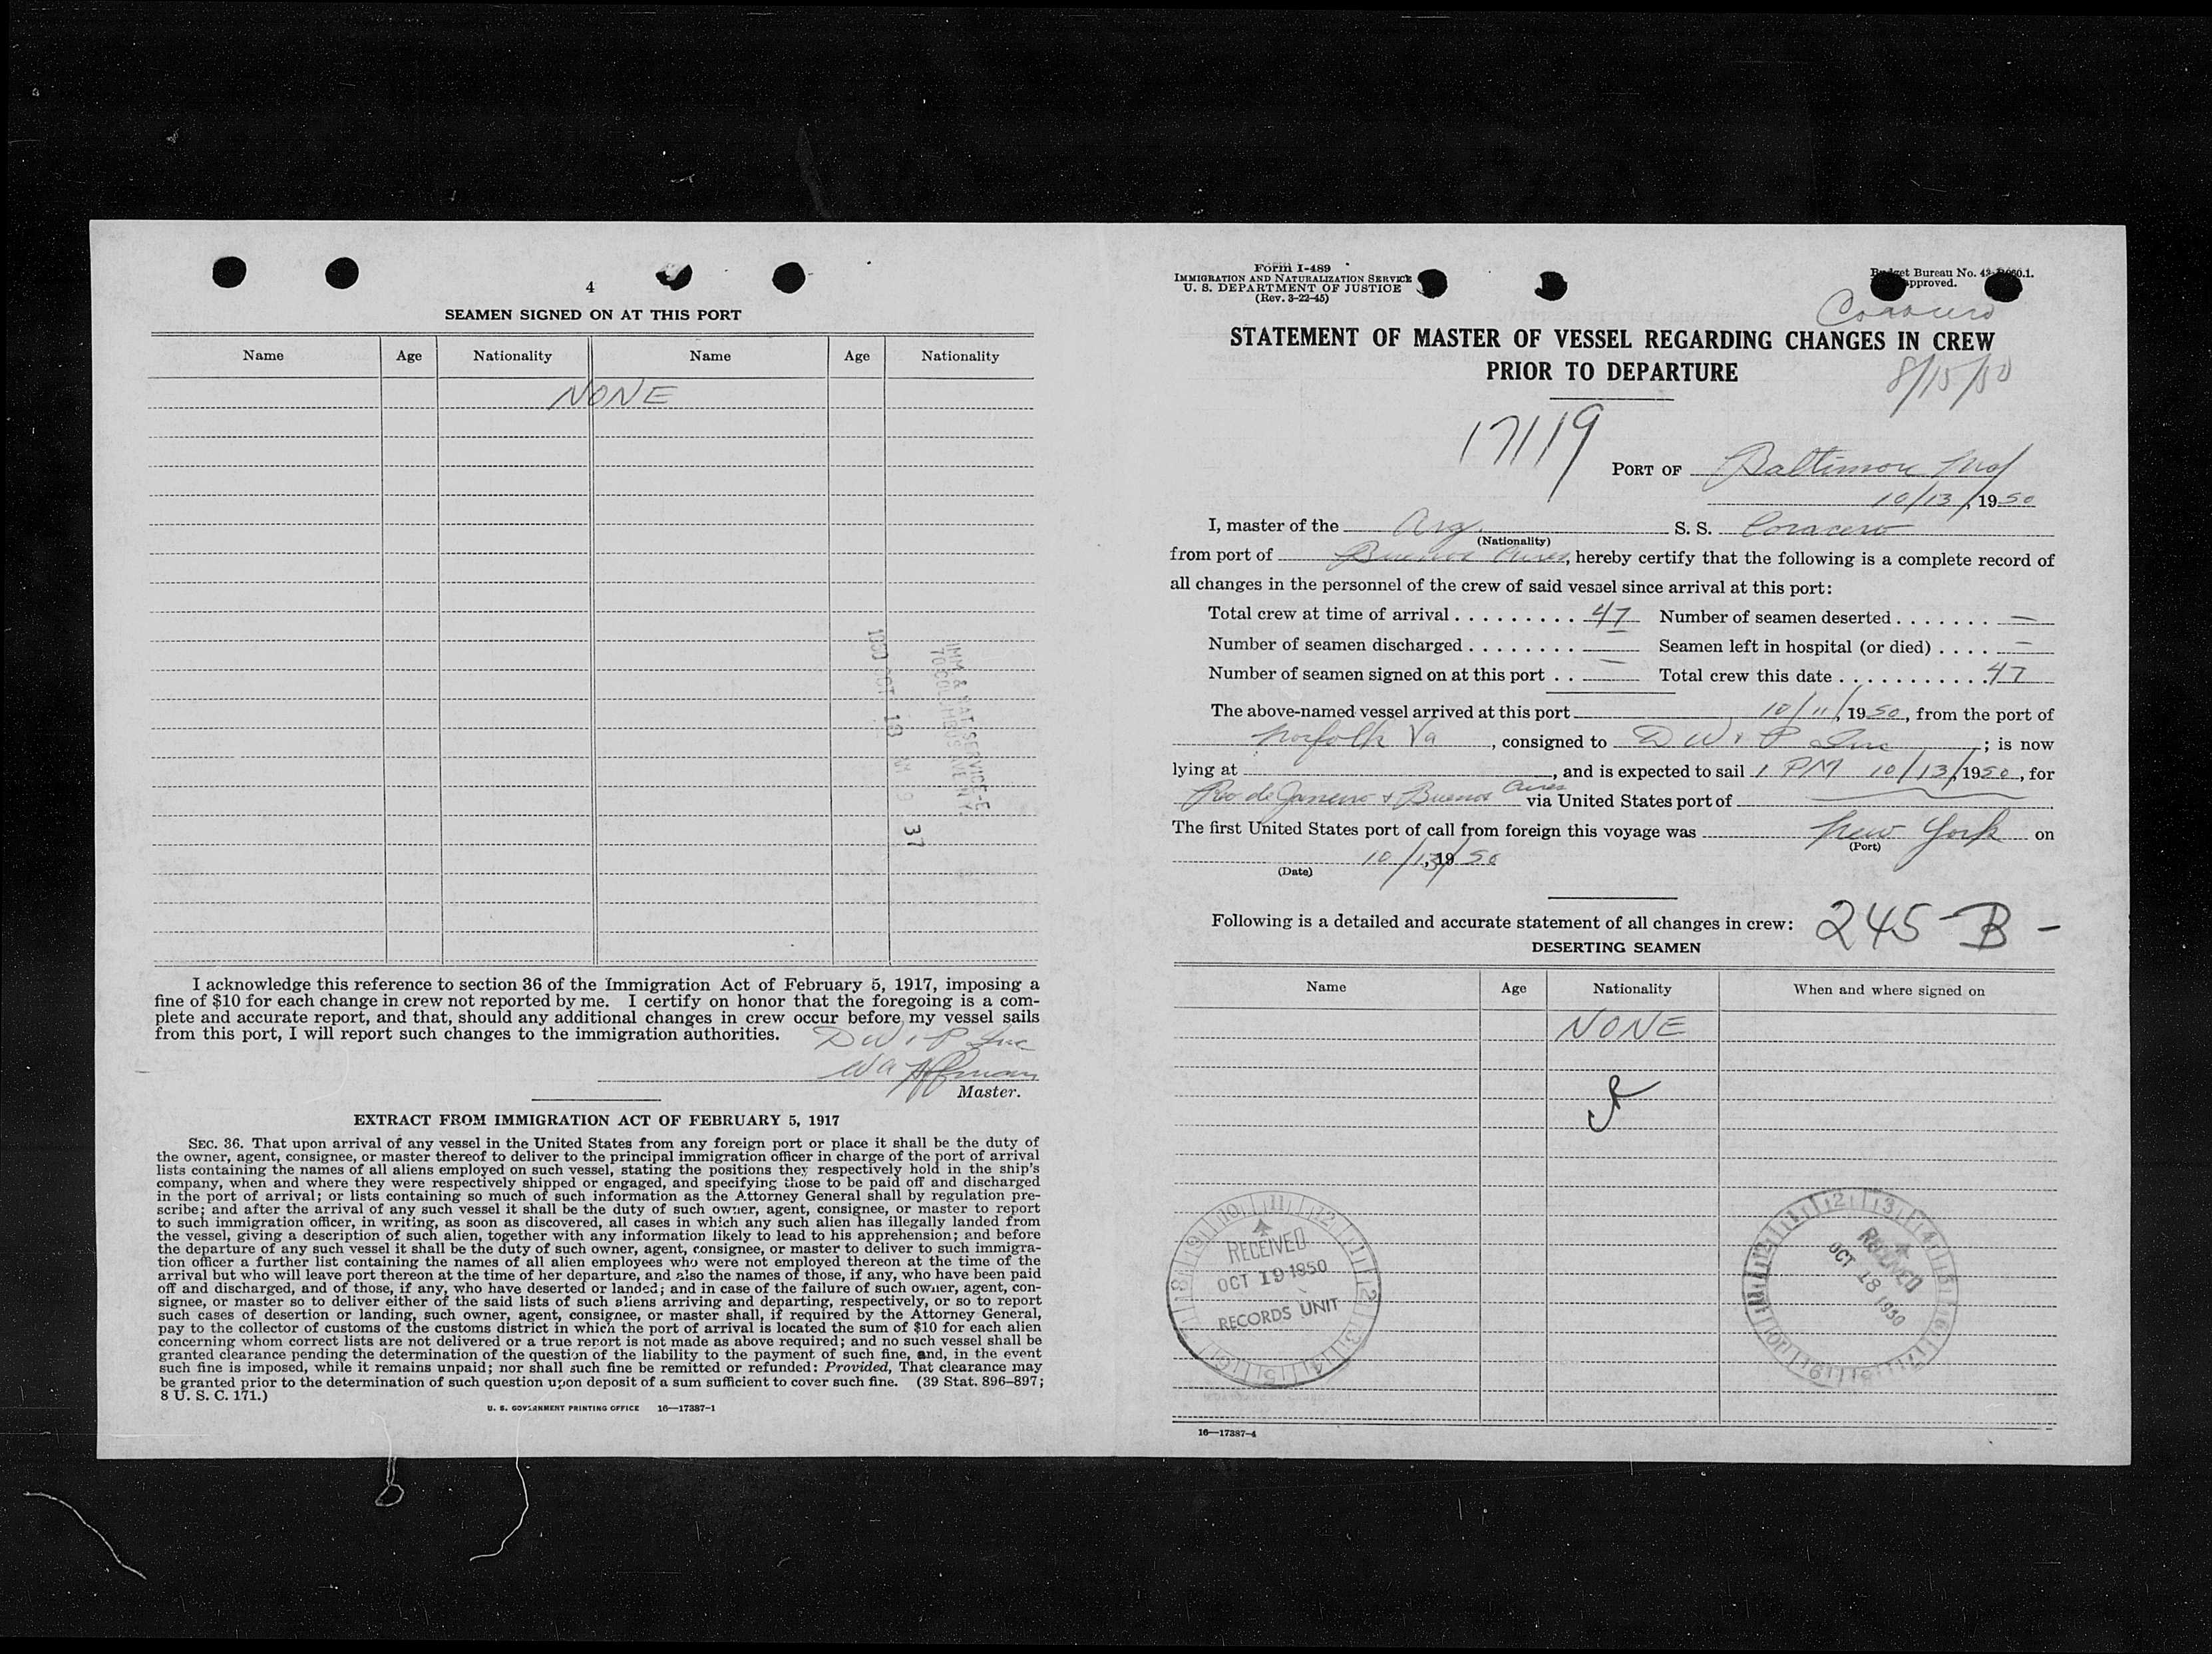 4
SEAMEN SIGNED ON AT THIS PORT
Name Age Nationality Name Age Nationality
NONE
1950 OCT 19
37
I acknowledge this reference to section 36 of the Immigration Act of February 5, 1917, imposing a
fine of $10 for each change in crew not reported by me. I certify on honor that the foregoing is a com-
plete and accurate report, and that, should any additional changes in crew occur before my vessel sails
from this port, I will report such changes to the immigration authorities.
D W & P Inc
Master.
EXTRACT FROM IMMIGRATION ACT OF FEBRUARY 5, 1917
SEC. 36. That upon arrival of any vessel in the United States from any foreign port or place it shall be the duty of
the owner, agent, consignee, or master thereof to deliver to the principal immigration officer in charge of the port of arrival
lists containing the names of all aliens employed on such vessel, stating the positions they respectively hold in the ship's
company, when and where they were respectively shipped or engaged, and specifying those to be paid off and discharged
in the port of arrival; or lists containing so much of such information as the Attorney General shall by regulation pre-
scribe; and after the arrival of any such vessel it shall be the duty of such owner, agent, consignee, or master to report
to such immigration officer, in writing, as soon as discovered, all cases in which any such alien has illegally landed from
the vessel, giving a description of such alien, together with any information likely to lead to his apprehension; and before
the departure of any such vessel it shall be the duty of such owner, agent, consignee, or master to deliver to such immigra-
tion officer a further list containing the names of all alien employees who were not employed thereon at the time of the
arrival but who will leave port thereon at the time of her departure, and also the names of those, if any, who have been paid
off and discharged, and of those, if any, who have deserted or landed; and in case of the failure of such owner, agent, con-
signee, or master so to deliver either of the said lists of such aliens arriving and departing, respectively, or so to report
such cases of desertion or landing, such owner, agent, consignee, or master shall, if required by the Attorney General,
pay to the collector of customs of the customs district in which the port of arrival is located the sum of $10 for each alien
concerning whom correct lists are not delivered or a true report is not made as above required; and no such vessel shall be
granted clearance pending the determination of the question of the liability to the payment of such fine, and, in the event
such fine is imposed, while it remains unpaid; nor shall such fine be remitted or refunded: Provided, That clearance may
be granted prior to the determination of such question upon deposit of a sum sufficient to cover such fine. (39 Stat. 896–897;
8 U. S. C. 171.)
U. S. GOVERNMENT PRINTING OFFICE 16—17387-1
Form I-489
IMMIGRATION AND NATURALIZATION SERVICE
U. S. DEPARTMENT OF JUSTICE
(Rev. 3-22-45)
Budget Bureau No.
approved.
STATEMENT OF MASTER OF VESSEL REGARDING CHANGES IN CREW
PRIOR TO DEPARTURE
8/15/50
17119
PORT OF Baltimore Md
10/13, 1950
I, master of the Arg. S. S. Coracero
(Nationality)
from port of Buenos Aires, hereby certify that the following is a complete record of
all changes in the personnel of the crew of said vessel since arrival at this port:
Total crew at time of arrival 47 Number of seamen deserted —
Number of seamen discharged — Seamen left in hospital (or died) —
Number of seamen signed on at this port — Total crew this date 47
The above-named vessel arrived at this port 10/11, 1950, from the port of
Norfolk Va, consigned to D W & P Inc; is now
lying at , and is expected to sail 1 PM 10/13, 1950, for
Rio de Janeiro & Buenos Aires via United States port of
The first United States port of call from foreign this voyage was New York on
(Port)
10/13, 1950
(Date)
Following is a detailed and accurate statement of all changes in crew: 245-B-
DESERTING SEAMEN
Name Age Nationality When and where signed on
NONE
RECEIVED
OCT 19 1950
RECORDS UNIT
RECEIVED
OCT 18 1950
16—17387-4